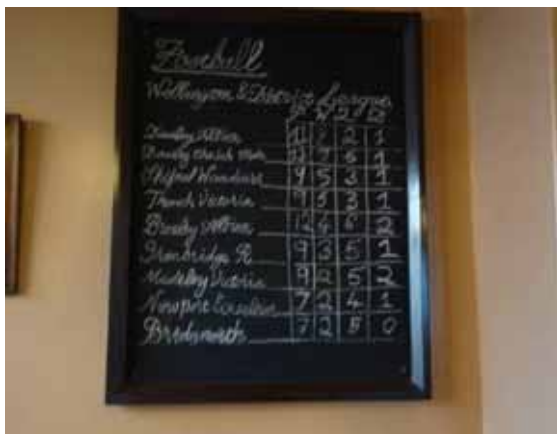 Football
Wellington & District League
P W D
Albion 11 2 1
1
Shifnal Wanderers 9 5 3 1
Trench Victoria 9 5 3 1
Broseley Albion 12 4 6 2
Ironbridge R 9 3 5 1
Madeley Victoria 9 2 5 2
Newport Excelsior 7 2 4 1
Bridgnorth 7 2 5 0